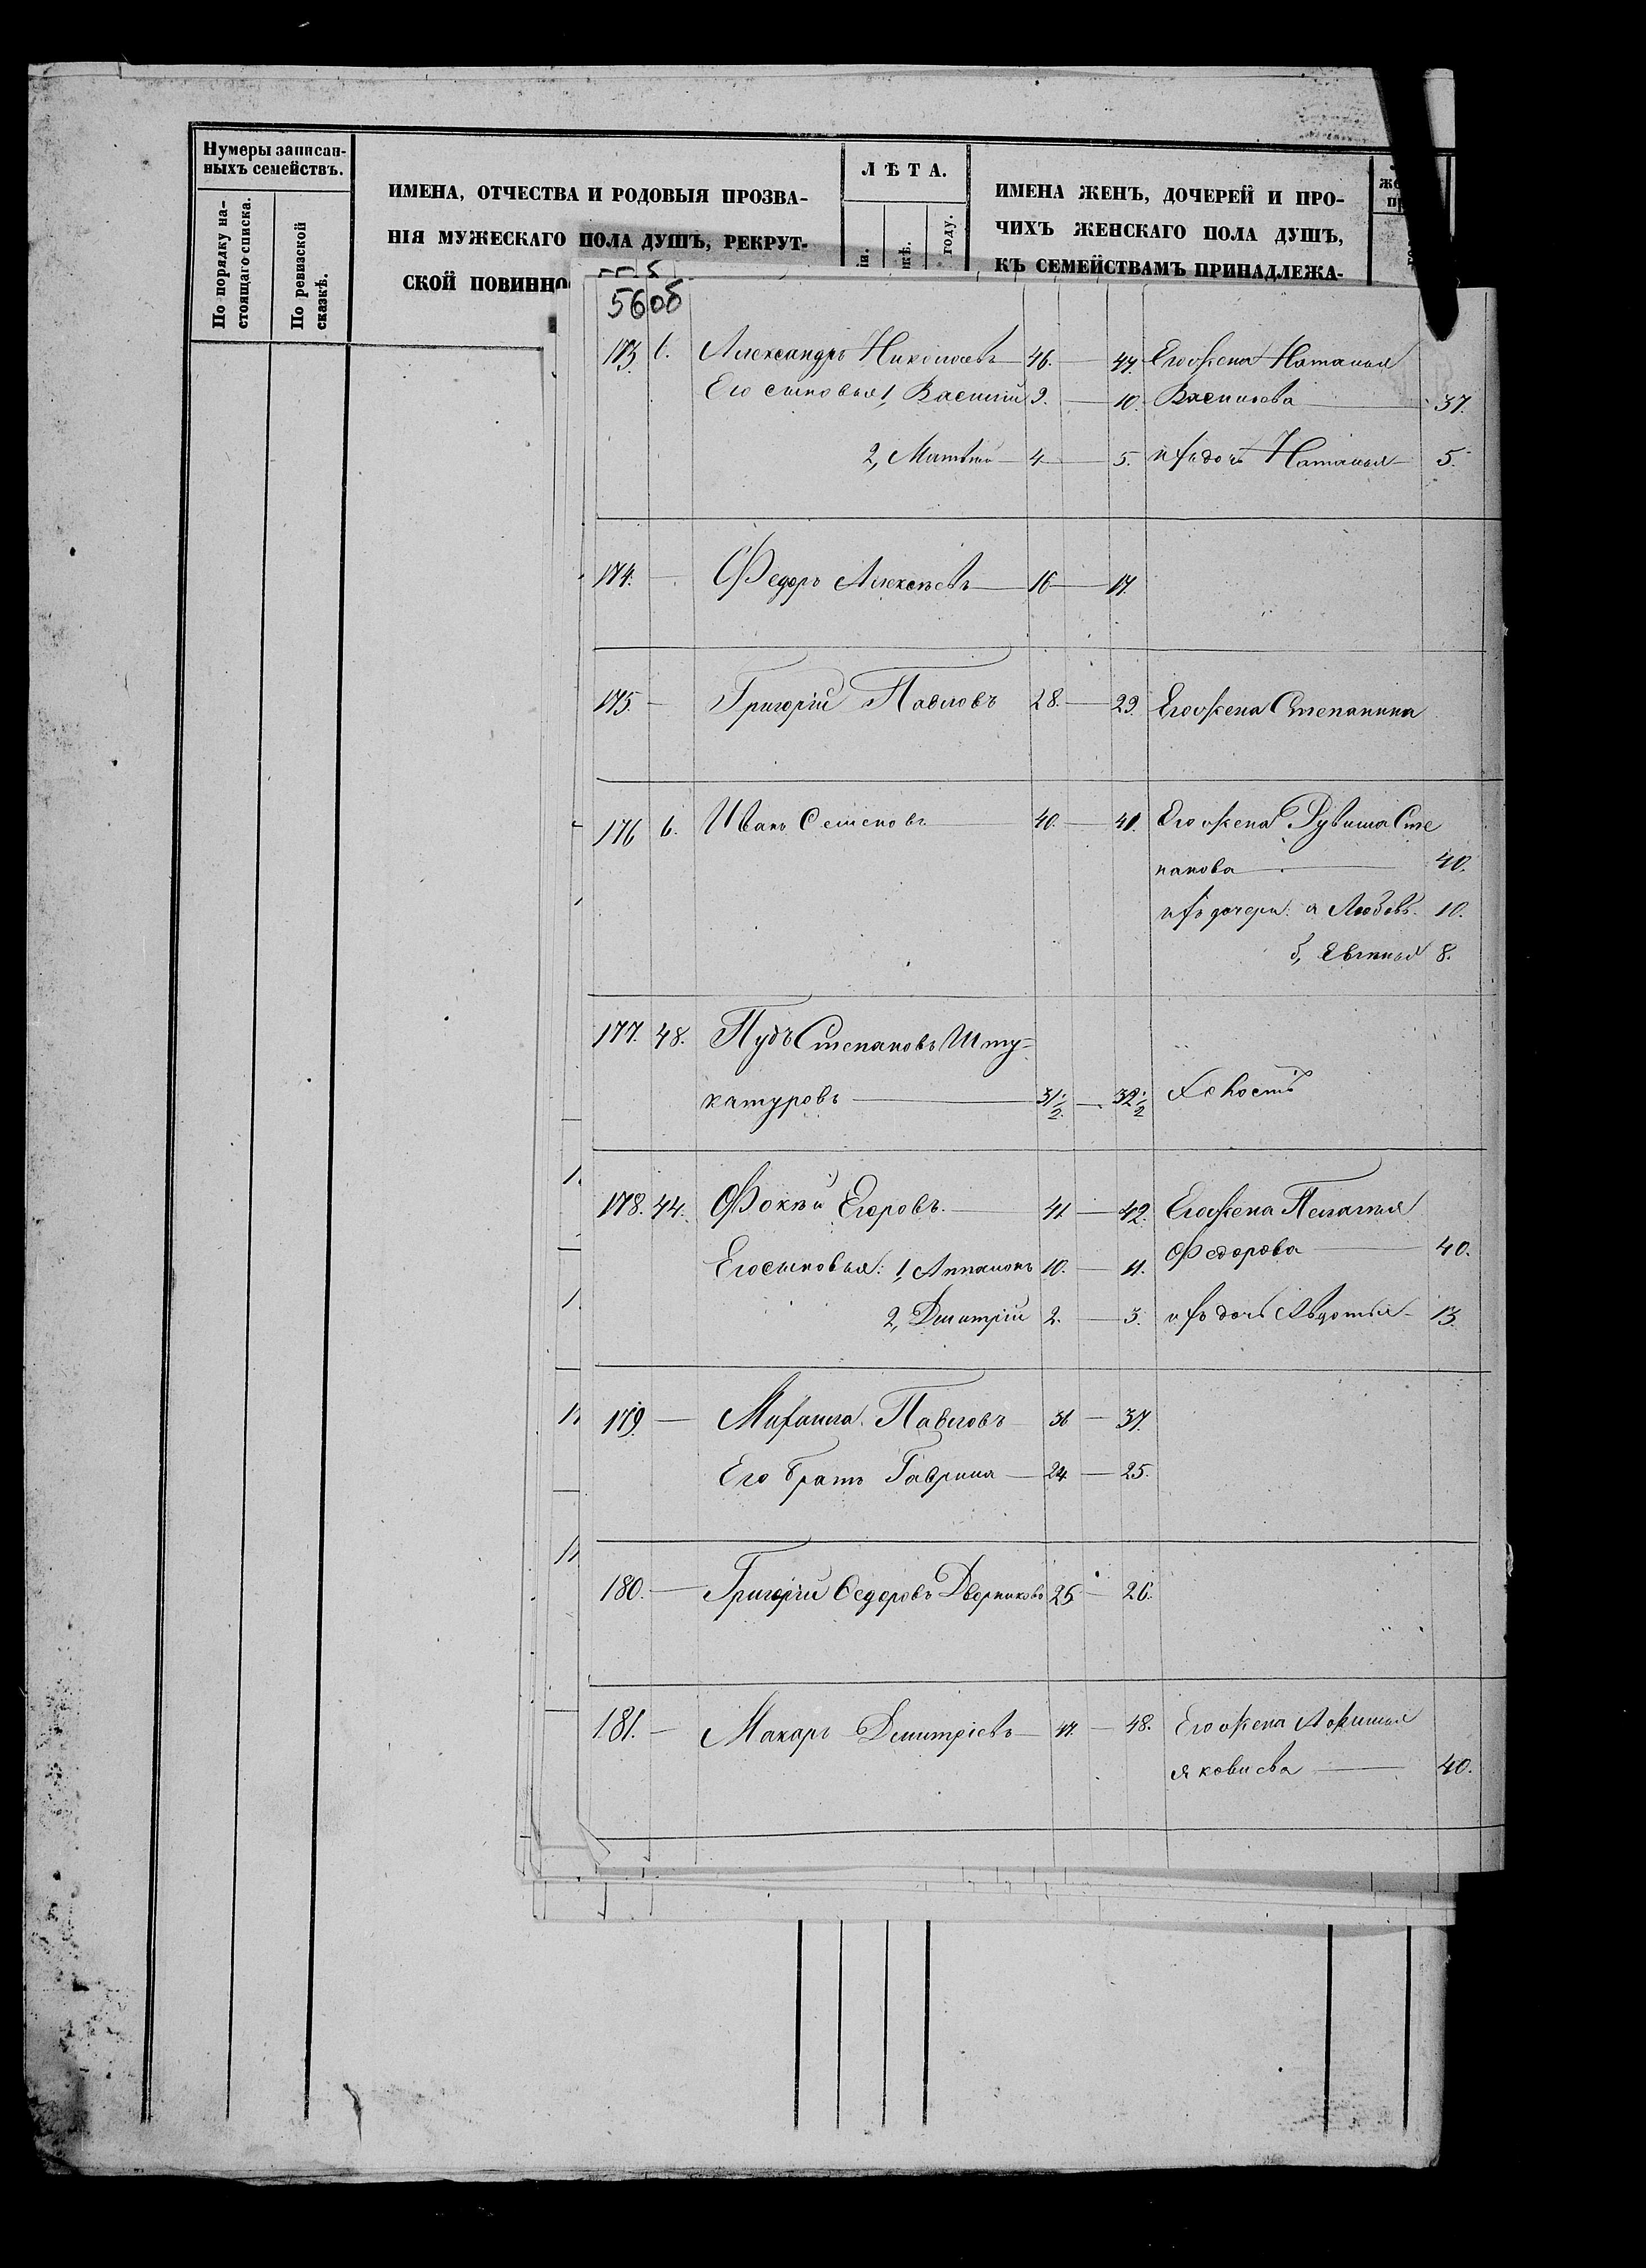 Нумеры записан-
ныхъ семействъ.
По порядку на-
стоящаго списка.
По ревизской
сказкѣ.
ИМЕНА, ОТЧЕСТВА И РОДОВЫЯ ПРОЗВА-
НІЯ МУЖЕСКАГО ПОЛА ДУШЪ, РЕКРУТ-
СКОЙ ПОВИННО
ЛѢТА.
году.
ИМЕНА ЖЕНЪ, ДОЧЕРЕЙ И ПРО-
ЧИХЪ ЖЕНСКАГО ПОЛА ДУШЪ,
КЪ СЕМЕЙСТВАМЪ ПРИНАДЛЕЖА-
560б
173. 6. Александръ Николаевъ 46. — 47. Его жена Наталья
Его сыновья 1, Василий 9. — 10. Васильева 37.
2, Матвѣй 4 — 5. ихъ дочь Наталья 5.
174. — Федоръ Алексѣевъ 16 — 17.
175. — Григорій Павловъ 28. — 29. Его жена Степанида
176 6. Иванъ Семеновъ 40. — 41. Его жена Сте
панова 40.
ихъ дочери: а Любовь 10.
б, Евгенья 8.
177. 48. Пудъ Степановъ Шту-
катуровъ 31 1/2 — 32 1/2 холостъ
178. 44. Фокѣй Егоровъ 41 — 42. Его жена Пелагея
Федорова 40.
Его сыновья: 1, 10. — 11.
2, Дмитрій 2. — 3. ихъ дочь Авдотья 13.
179. — Михаила Павловъ 36 — 37.
Его братъ Гаврила 24 — 25.
180. — Григорій Федоровъ Дворниковъ 25 — 26.
181. — Макаръ Дмитріевъ 47. — 48. Его жена
Яковлева 40.